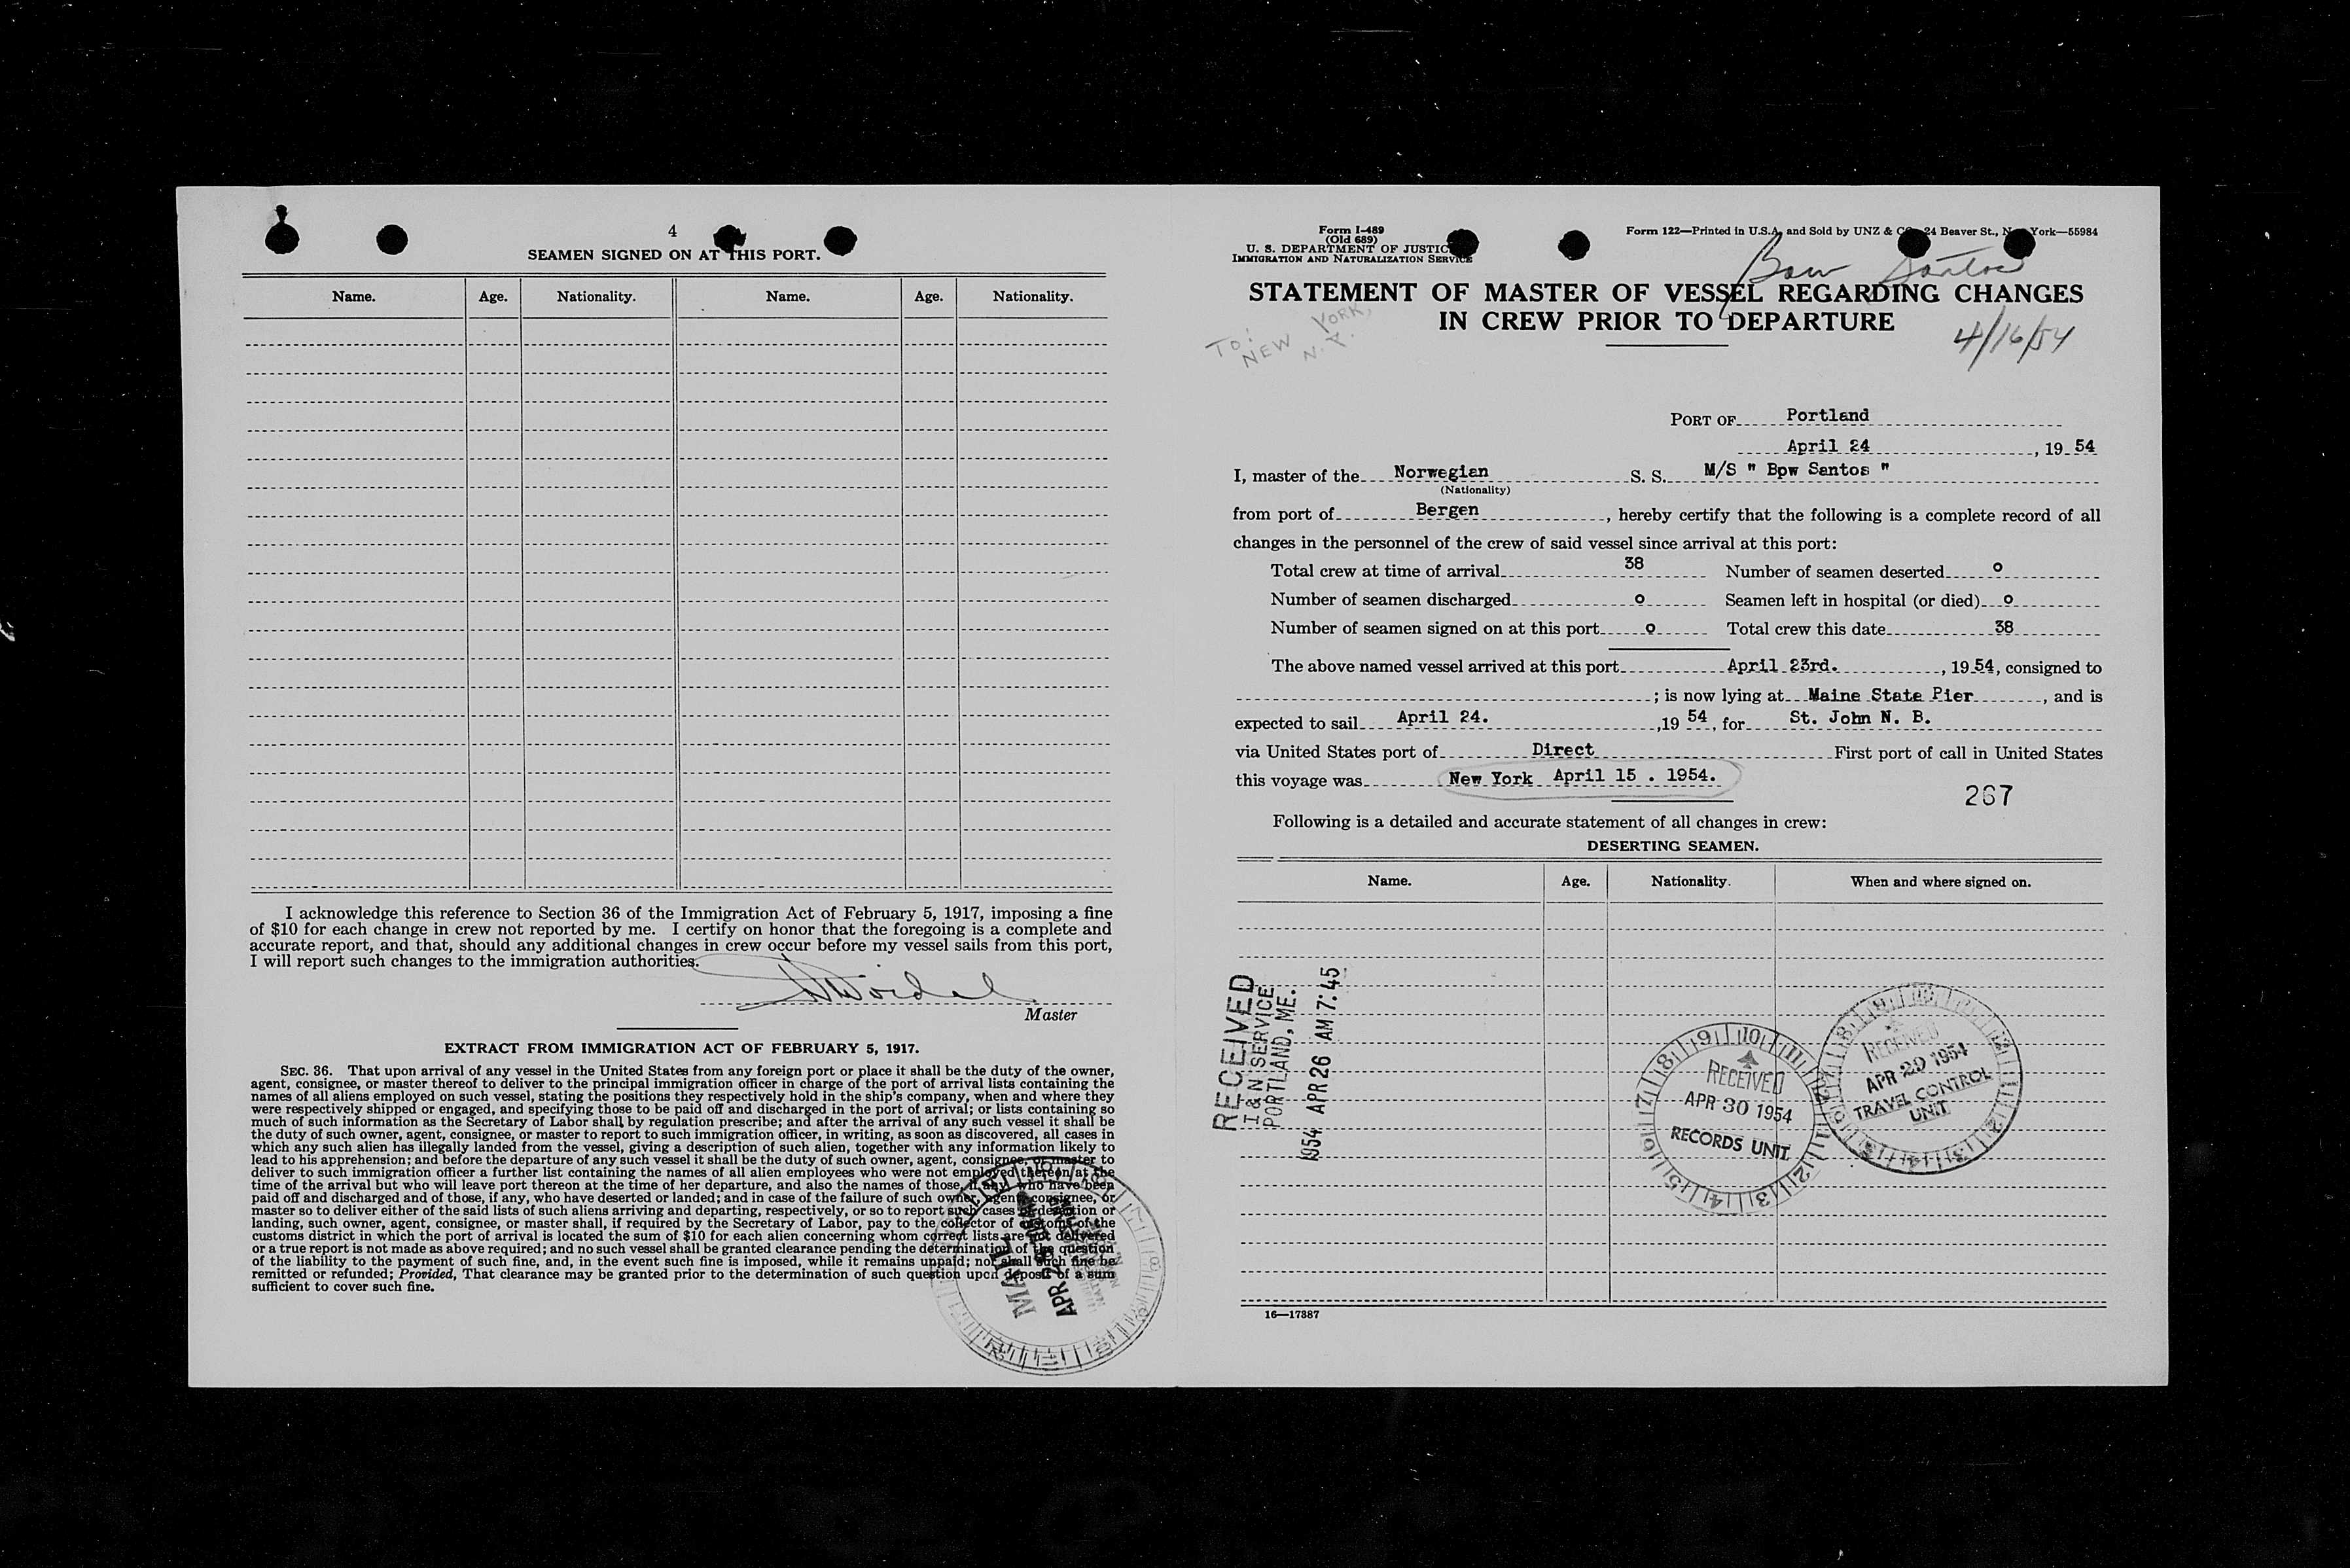 4
SEAMEN SIGNED ON AT THIS PORT.
Name. Age. Nationality. Name. Age. Nationality.
I acknowledge this reference to Section 36 of the Immigration Act of February 5, 1917, imposing a fine
of $10 for each change in crew not reported by me. I certify on honor that the foregoing is a complete and
accurate report, and that, should any additional changes in crew occur before my vessel sails from this port,
I will report such changes to the immigration authorities.
Master
EXTRACT FROM IMMIGRATION ACT OF FEBRUARY 5, 1917.
SEC. 36. That upon arrival of any vessel in the United States from any foreign port or place it shall be the duty of the owner,
agent, consignee, or master thereof to deliver to the principal immigration officer in charge of the port of arrival lists containing the
names of all aliens employed on such vessel, stating the positions they respectively hold in the ship's company, when and where they
were respectively shipped or engaged, and specifying those to be paid off and discharged in the port of arrival; or lists containing so
much of such information as the Secretary of Labor shall by regulation prescribe; and after the arrival of any such vessel it shall be
the duty of such owner, agent, consignee, or master to report to such immigration officer, in writing, as soon as discovered, all cases in
which any such alien has illegally landed from the vessel, giving a description of such alien, together with any information likely to
lead to his apprehension; and before the departure of any such vessel it shall be the duty of such owner, agent, consignee, or master to
deliver to such immigration officer a further list containing the names of all alien employees who were not employed thereon at the
time of the arrival but who will leave port thereon at the time of her departure, and also the names of those, if any, who have been
paid off and discharged and of those, if any, who have deserted or landed; and in case of the failure of such owner, agent, consignee, or
master so to deliver either of the said lists of such aliens arriving and departing, respectively, or so to report such cases of desertion or
landing, such owner, agent, consignee, or master shall, if required by the Secretary of Labor, pay to the collector of customs of the
customs district in which the port of arrival is located the sum of $10 for each alien concerning whom correct lists are not delivered
or a true report is not made as above required; and no such vessel shall be granted clearance pending the determination of the question
of the liability to the payment of such fine, and, in the event such fine is imposed, while it remains unpaid; nor shall such fine be
remitted or refunded; Provided, That clearance may be granted prior to the determination of such question upon deposit of a sum
sufficient to cover such fine.
MAIL
APR
Form I-489
(Old 689)
U. S. DEPARTMENT OF JUSTICE
IMMIGRATION AND NATURALIZATION SERVICE
Form 122—Printed in U.S.A. and Sold by UNZ & CO. 24 Beaver St., New York—55984
Bow Santos
STATEMENT OF MASTER OF VESSEL REGARDING CHANGES
IN CREW PRIOR TO DEPARTURE
TO: NEW YORK, N.Y.
4/16/54
PORT OF Portland
April 24, 1954
I, master of the Norwegian S. S. M/S " Bpw Santos "
(Nationality)
from port of Bergen, hereby certify that the following is a complete record of all
changes in the personnel of the crew of said vessel since arrival at this port:
Total crew at time of arrival 38 Number of seamen deserted o
Number of seamen discharged o Seamen left in hospital (or died) o
Number of seamen signed on at this port o Total crew this date 38
The above named vessel arrived at this port April 23rd., 1954, consigned to
; is now lying at Maine State Pier, and is
expected to sail April 24. ,19 54, for St. John N. B.
via United States port of Direct First port of call in United States
this voyage was New York April 15 . 1954.
267
Following is a detailed and accurate statement of all changes in crew:
DESERTING SEAMEN.
Name. Age. Nationality. When and where signed on.
RECEIVED
I & N SERVICE
PORTLAND, ME.
1954 APR 26 AM 7:45
RECEIVED
APR 30 1954
RECORDS UNIT
RECEIVED
APR 29 1954
TRAVEL CONTROL
UNIT
16—17387